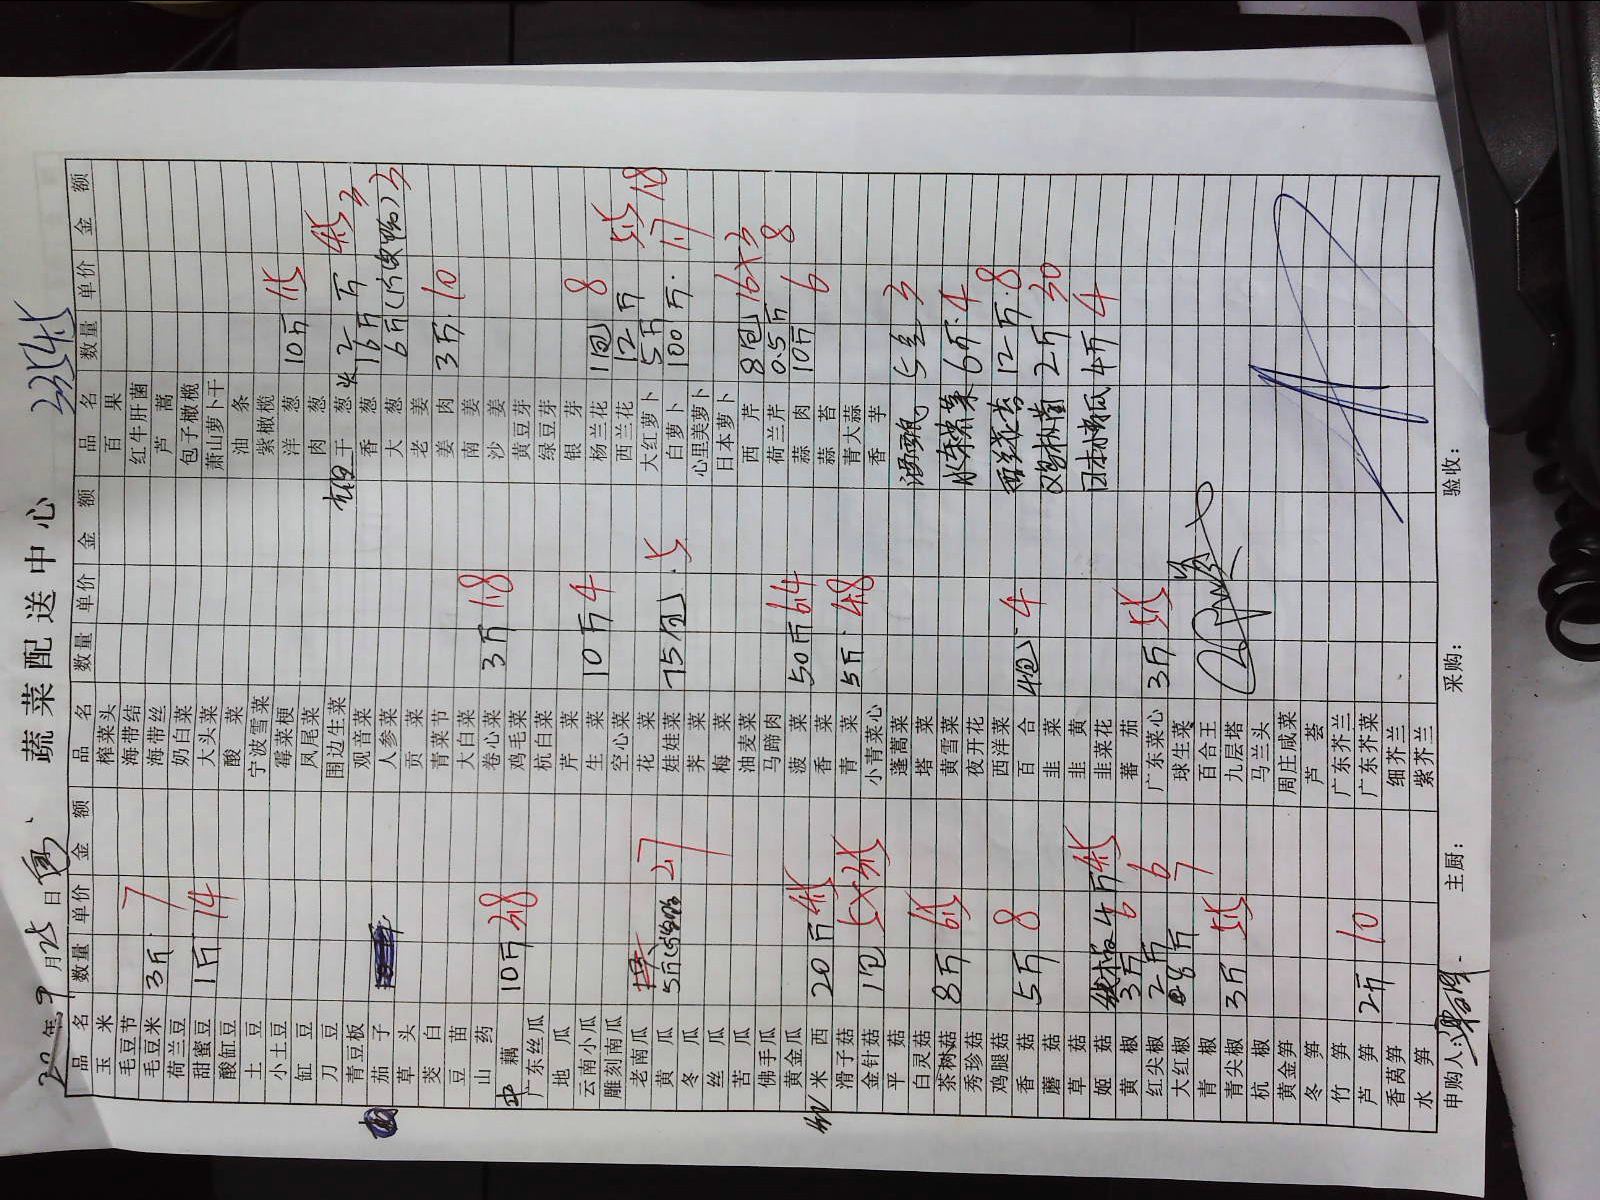 蔬菜配送中心 2354.5
年9月25日
品名 数量 单价 金额 品名 数量 单价 金额 品名 数量 单价 金额
玉米 榨菜头 百果
毛豆节 海带结 红牛肝菌
毛豆米 3斤 7 海带丝 芦蒿
荷兰豆 奶白菜 包子橄榄
甜蜜豆 1斤 14 大头菜 萧山萝卜干
酸缸豆 酸菜 油条
土豆 宁波雪菜 紫橄榄
小土豆 霉菜梗 洋葱 10斤 1.5
缸豆 凤尾菜 肉葱
刀豆 围边生菜 干葱 2斤 4.5
青豆板 观音菜 香葱 16斤 3
茄子 人参菜 大葱 6斤 3
草头 贡菜 老姜
茭白 青菜节 姜肉 3斤 10
豆苗 大白菜 南姜
山药 卷心菜 3斤 1.8 沙姜
中藕 10斤 3.8 鸡毛菜 黄豆芽
广东丝瓜 杭白菜 绿豆芽
地瓜 芹菜 银芽
云南小瓜 生菜 10斤 4 杨兰花 1包 8
雕刻南瓜 空心菜 西兰花 12斤 5.5
老南瓜 花菜 大红萝卜 5斤 1.8
黄瓜 5斤 2.7 娃娃菜 75包 .5 白萝卜 100斤 1.7
冬瓜 荠菜 心里美萝卜
丝瓜 梅菜 日本萝卜
苦瓜 油麦菜 西芹 8包 16×3
佛手瓜 马蹄肉 荷兰芹 0.5斤 8
黄金瓜 菠菜 50斤 6.4 蒜肉 10斤 6
米西 20斤 4.5 香菜 蒜苔
滑子菇 青菜 5斤 4.8 青大蒜
金针菇 1包 5×3.5 小青菜心 香芋
平菇 蓬蒿菜 3
白灵菇 塔菜
茶树菇 8斤 6.5 黄雪菜 6斤 4
秀珍菇 夜开花
鸡腿菇 西洋菜 西兰花苔 12斤 8
香菇 5斤 8 百合 4包 4
蘑菇 韭菜 2斤 30
草菇 韭黄 日本南瓜 4斤 4
姬菇 线椒 4斤 4.5 韭菜花
黄椒 3斤 6 蕃茄
红尖椒 2斤 6 广东菜心 3斤 5.5
大红椒 8斤 7 球生菜
青椒 百合王
青尖椒 3斤 5.5 九层塔
杭椒 马兰头
黄金笋 周庄咸菜
冬笋 芦荟
竹笋 广东芥兰
芦笋 2斤 10 广东芥菜
香莴笋 细芥兰
水笋 紫芥兰
申购人: 主厨: 采购: 验收: